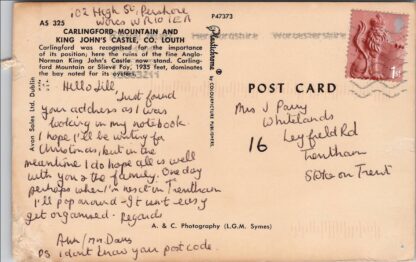 102 High St, Pershore
Worcs WR10 1EA
AS 325
P47373
CARLINGFORD MOUNTAIN AND
KING JOHN'S CASTLE, CO. LOUTH
Carlingford was recognised for the importance
of its position; here the ruins of the fine Anglo-
Norman King John's Castle now stand. Carling-
ford Mountain or Slieve Foy, 1935 feet, dominates
the bay noted for its oysters.
Avon Sales Ltd. Dublin
Plastichrome
BY COLOURPICTURE PUBLISHERS
Hello Jill
Just found
your address as I was
looking in my notebook.
I hope I'll be writing for
Christmas, but in the
meantime I do hope all is well
with you & the family. One day
perhaps when I'm next in Trentham
I'll pop around - It isn't easy
get organised. Regards
Ann
PS I don't know your post code.
POST CARD
Mrs J Parry
Whitelands
16 Leyfield Rd
Trentham
Stoke on Trent
A. & C. Photography (L.G.M. Symes)